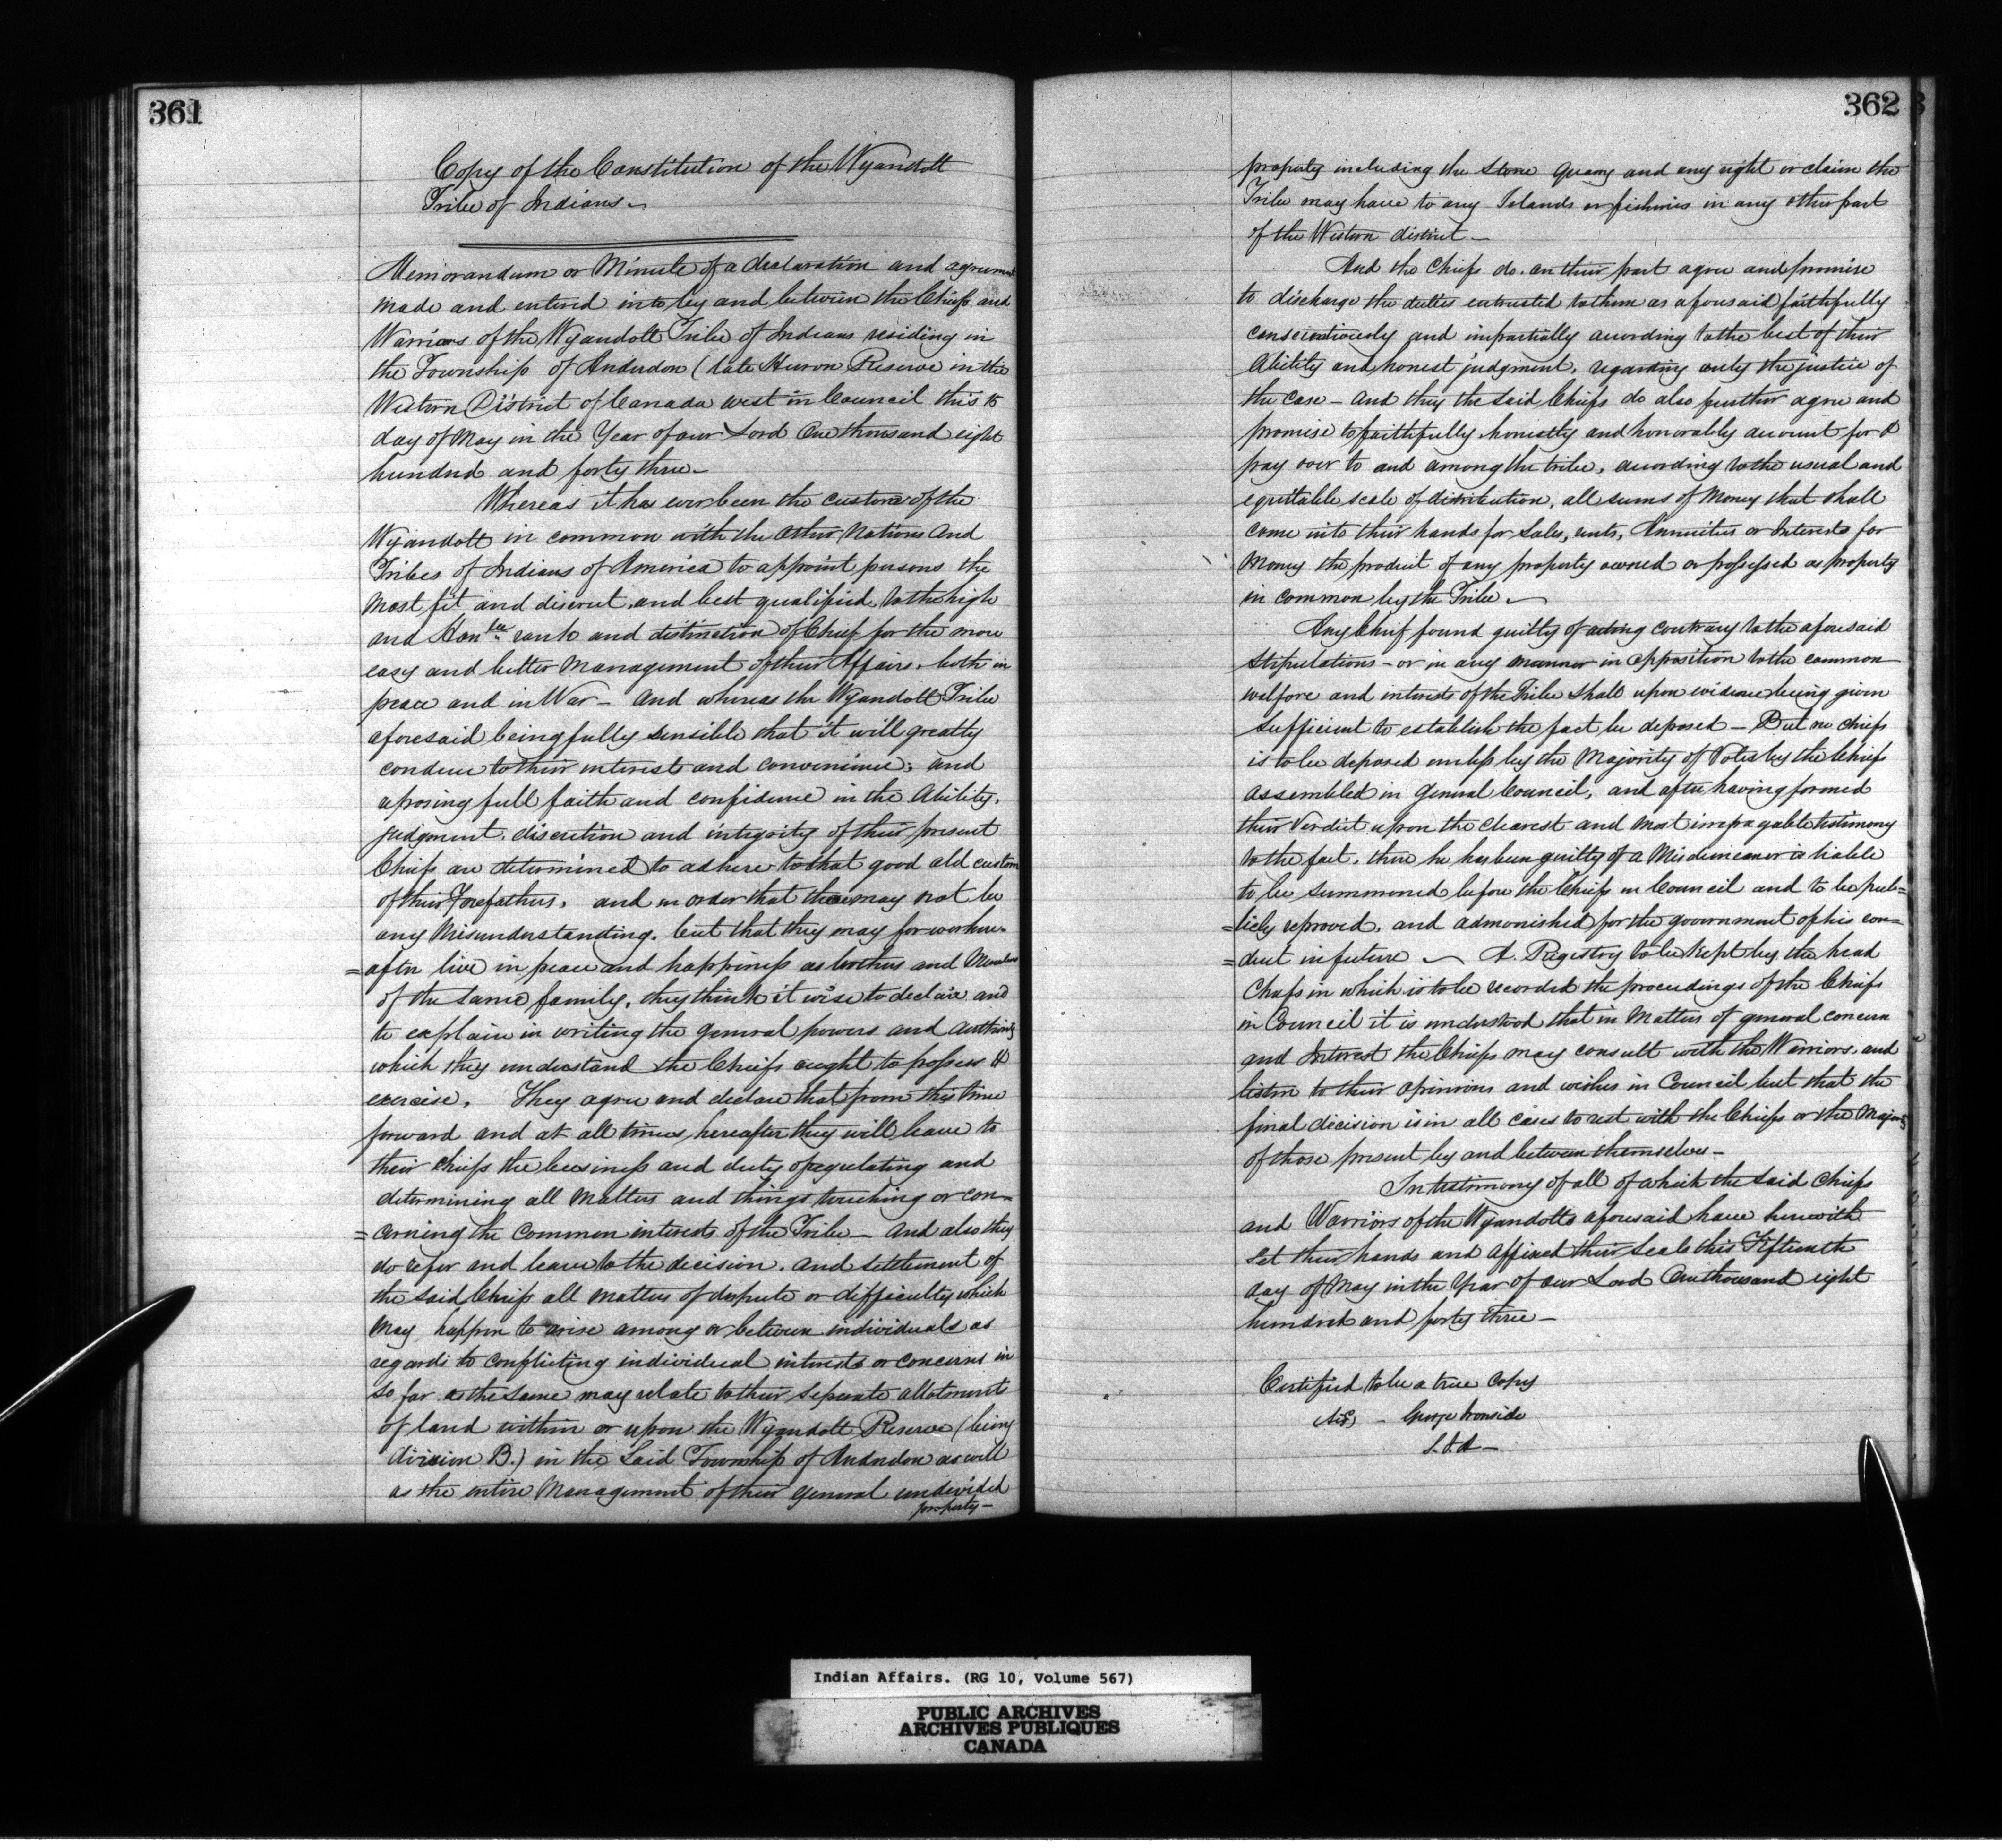 361
Copy of the Constitution of the Wyandott
Tribe of Indians.~
Memorandum or Minute of a declaration and agreement
made and entered into by and between the Chiefs and
Warriors of the Wyandott Tribe of Indians residing in
the Township of Anderdon (late Huron Reserve in the
Western District of Canada west in Council this 15
day of May in the Year of our Lord One thousand eight
hundred and forty three.
Whereas it has ever been the custom of the
Wyandott in common with the other Nations and
Tribes of Indians of America to appoint persons the
most fit and discreet and best qualified to the high
and Honble rank and distinction of Chief for the more
easy and better Management of their Affairs, both in
peace and in War – and whereas the Wyandott Tribe
aforesaid being fully sensible that it will greatly
conduce to their interests and convenience; and
reposing full faith and confidence in the Ability,
judgment, discretion and integrity of their present
Chiefs are determined to adhere to that good old custom
of their Forefathers, and in order that there may not be
any Misunderstanding, but that they may forever here=
=after live in peace and happiness as brothers and Members
of the same family, they think it wise to declare and
to explain in writing the general powers and authority
which they understand the Chiefs ought to possess &
exercise. They agree and declare that from this time
forward and at all times hereafter they will leave to
their chiefs the business and duty of regulating and
determining all Matters and things touching or con=
=cerning the common interests of the Tribe – And also they
do refer and leave to the decision, and settlement of
the said Chiefs all matters of dispute or difficulty which
May happen to arise among or between individuals as
regards to conflicting individual interests or concerns in
so far as the same may relate to their separate allotments
of land within or upon the Wyandott Reserve (being
division B.) in the said Township of Anderdon as well
as the entire Management of their general undivided
property –
362
property including the Stone Quarry and any right or claim the
Tribe may have to any Islands or fisheries in any other part
of the Western district –
And the Chiefs do on their part agree and promise
to discharge the duties entrusted to them as aforesaid faithfully
conscientiously and impartially according to the best of their
Ability and honest judgment, regarding only the justice of
the case – and they the said Chiefs do also further agree and
promise to faithfully honestly and honorably account for &
pay over to and among the tribe, according to the usual and
equitable scale of distribution, all sums of Money that shall
come into their hands for Sales, rents, Annuities or Interests for
Money the product of any property owned or possessed as property
in common by the Tribe ~
Any Chief found guilty of acting contrary to the aforesaid
stipulations – or in any manner in opposition to the common
welfare and interests of the Tribe shall upon evidence being given
sufficient to establish the fact be deposed – But no chief
is to be deposed unless by the Majority of Votes by the Chiefs
assembled in General Council, and after having formed
their Verdict upon the clearest and most testimony
to the fact, there he has been guilty of a Misdemeanor is liable
to be summoned before the Chiefs in Council and to be pub=
=licly reproved, and admonished for the government of his con=
=duct in future ~ A. Registry to be kept by the head
Chiefs in which is to be recorded the proceedings of the Chiefs
in Council it is understood that in Matters of general concern
and Interest the Chiefs may consult with the Warriors, and
listen to their opinions and wishes in Council but that the
final decision is in all cases to rest with the Chiefs or the Majority
of those present by and between themselves –
In testimony of all of which the said Chiefs
and Warriors of the Wyandotts aforesaid have herewith
set their hands and affixed their Seals this Fifteenth
day of May in the Year of our Lord One thousand eight
hundred and forty three –
Certified to be a true Copy
George Ironside
S.I.A –
Indian Affairs. (RG 10, Volume 567)
PUBLIC ARCHIVES
ARCHIVES PUBLIQUES
CANADA